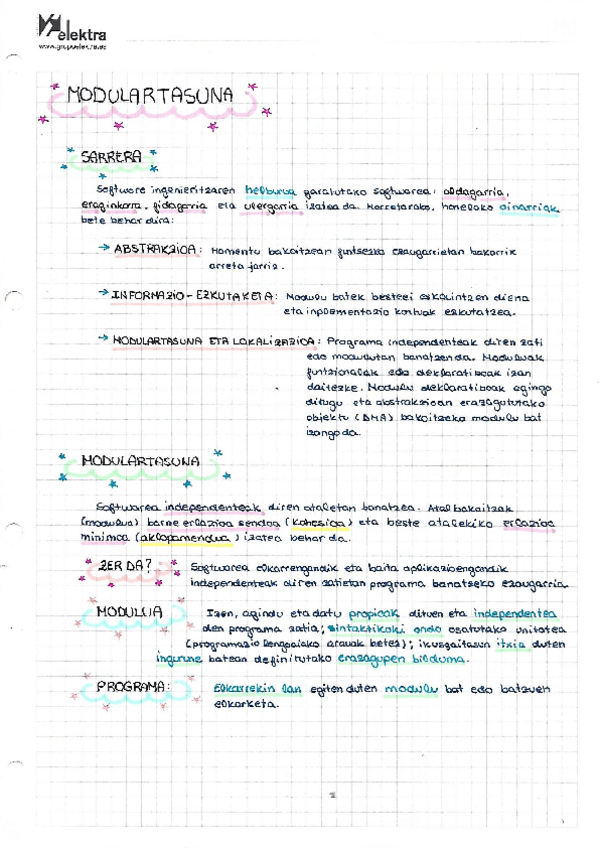 elektra
www.grupoelektra.es
MODULARTASUNA
SARRERA
Software ingenieritzaren helburua garatutako softwarea: aldagarria,
eraginkorra, fidagarria eta ulergarria izatea da. Horretarako, honelako oinarriak
bete behar dira:
→ ABSTRAKZIOA: Momentu bakoitzean funtsezko ezaugarrietan bakarrik
arreta jarriz.
→ INFORMAZIO-EZKUTAKETA: Modulu batek besteei eskaintzen diena
eta inplementazio kontuak ezkutatzea.
→ MODULARTASUNA ETA LOKALIZAZIOA: Programa independenteak diren zati
edo modulutan banatzen da. Moduluak
funtzionalak edo deklaratiboak izan
daitezke. Modulu deklaratiboak egingo
ditugu eta abstrakzioan erazagututako
objektu (DMA) bakoitzeko modulu bat
izango da.
MODULARTASUNA
Softwarea independenteak diren ataletan banatzea. Atal bakoitzak
(modulua) barne erlazioa sendoa (kohesioa) eta beste atalekiko erlazioa
minimoa (aklopamendua) izatea behar da.
ZER DA? Softwarea elkarrengandik eta baita aplikazioengandik
independenteak diren zatietan programa banatzeko ezaugarria.
MODULUA Izen, agindu eta datu propioak dituen eta independentea
den programa zatia; sintaktikoki ondo osatutako unitatea
(programazio lengoaiako arauak betez); ikusgaitasun itxia duten
ingurune batean definitutako erazagupen bilduma.
PROGRAMA: Elkarrekin lan egiten duten modulu bat edo batzuen
elkarketa.